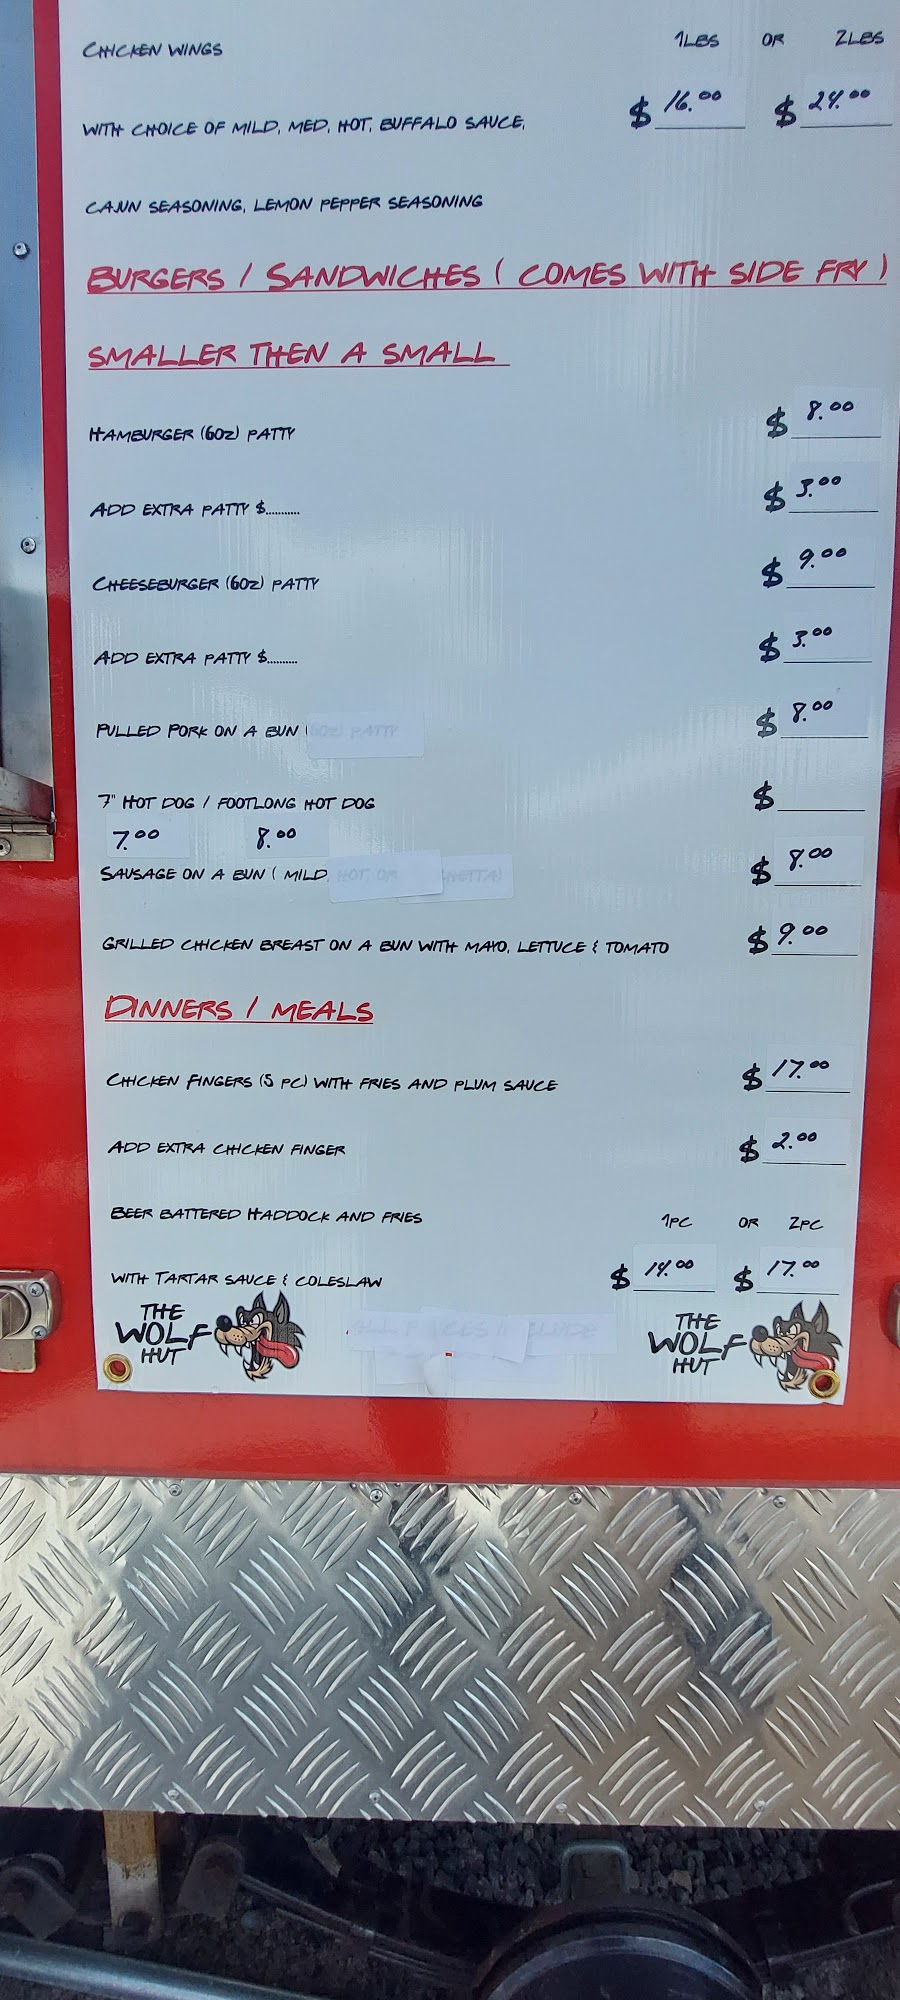 CHICKEN WINGS 1LBS OR 2LBS
WITH CHOICE OF MILD, MED, HOT, BUFFALO SAUCE, $ 16.00 $ 24.00
CAJUN SEASONING, LEMON PEPPER SEASONING
BURGERS / SANDWICHES ( COMES WITH SIDE FRY )
SMALLER THEN A SMALL
HAMBURGER (6OZ) PATTY $ 8.00
ADD EXTRA PATTY $........... $ 3.00
CHEESEBURGER (6OZ) PATTY $ 9.00
ADD EXTRA PATTY $........... $ 3.00
PULLED PORK ON A BUN (6OZ) PATTY $ 8.00
7" HOT DOG / FOOTLONG HOT DOG $
7.00 8.00
SAUSAGE ON A BUN ( MILD, HOT OR $ 8.00
GRILLED CHICKEN BREAST ON A BUN WITH MAYO, LETTUCE & TOMATO $ 9.00
DINNERS / MEALS
CHICKEN FINGERS (5 PC) WITH FRIES AND PLUM SAUCE $ 17.00
ADD EXTRA CHICKEN FINGER $ 2.00
BEER BATTERED HADDOCK AND FRIES 1PC OR 2PC
WITH TARTAR SAUCE & COLESLAW $ 14.00 $ 17.00
THE WOLF HUT
THE WOLF HUT